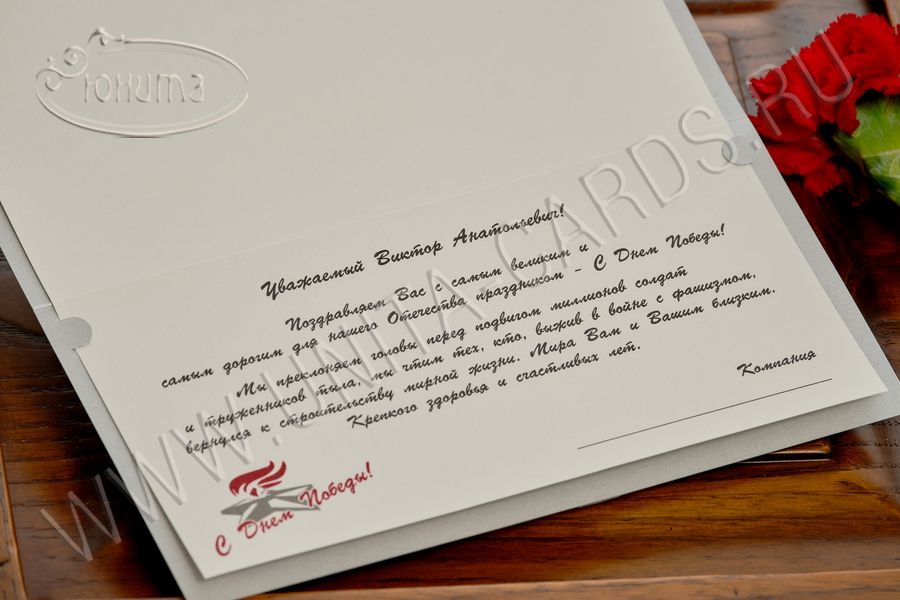 Юнита
Уважаемый Виктор Анатольевич!
Поздравляем Вас с самым великим и
самым дорогим для нашего Отечества праздником - С Днем Победы!
Мы преклоняем головы перед подвигом миллионов солдат
и тружеников тыла, мы чтим тех, кто, выжив в войне с фашизмом,
вернулся к строительству мирной жизни. Мира Вам и Вашим близким.
Крепкого здоровья и счастливых лет.
Компания
С Днем Победы!
WWW.UNITA-CARDS.RU